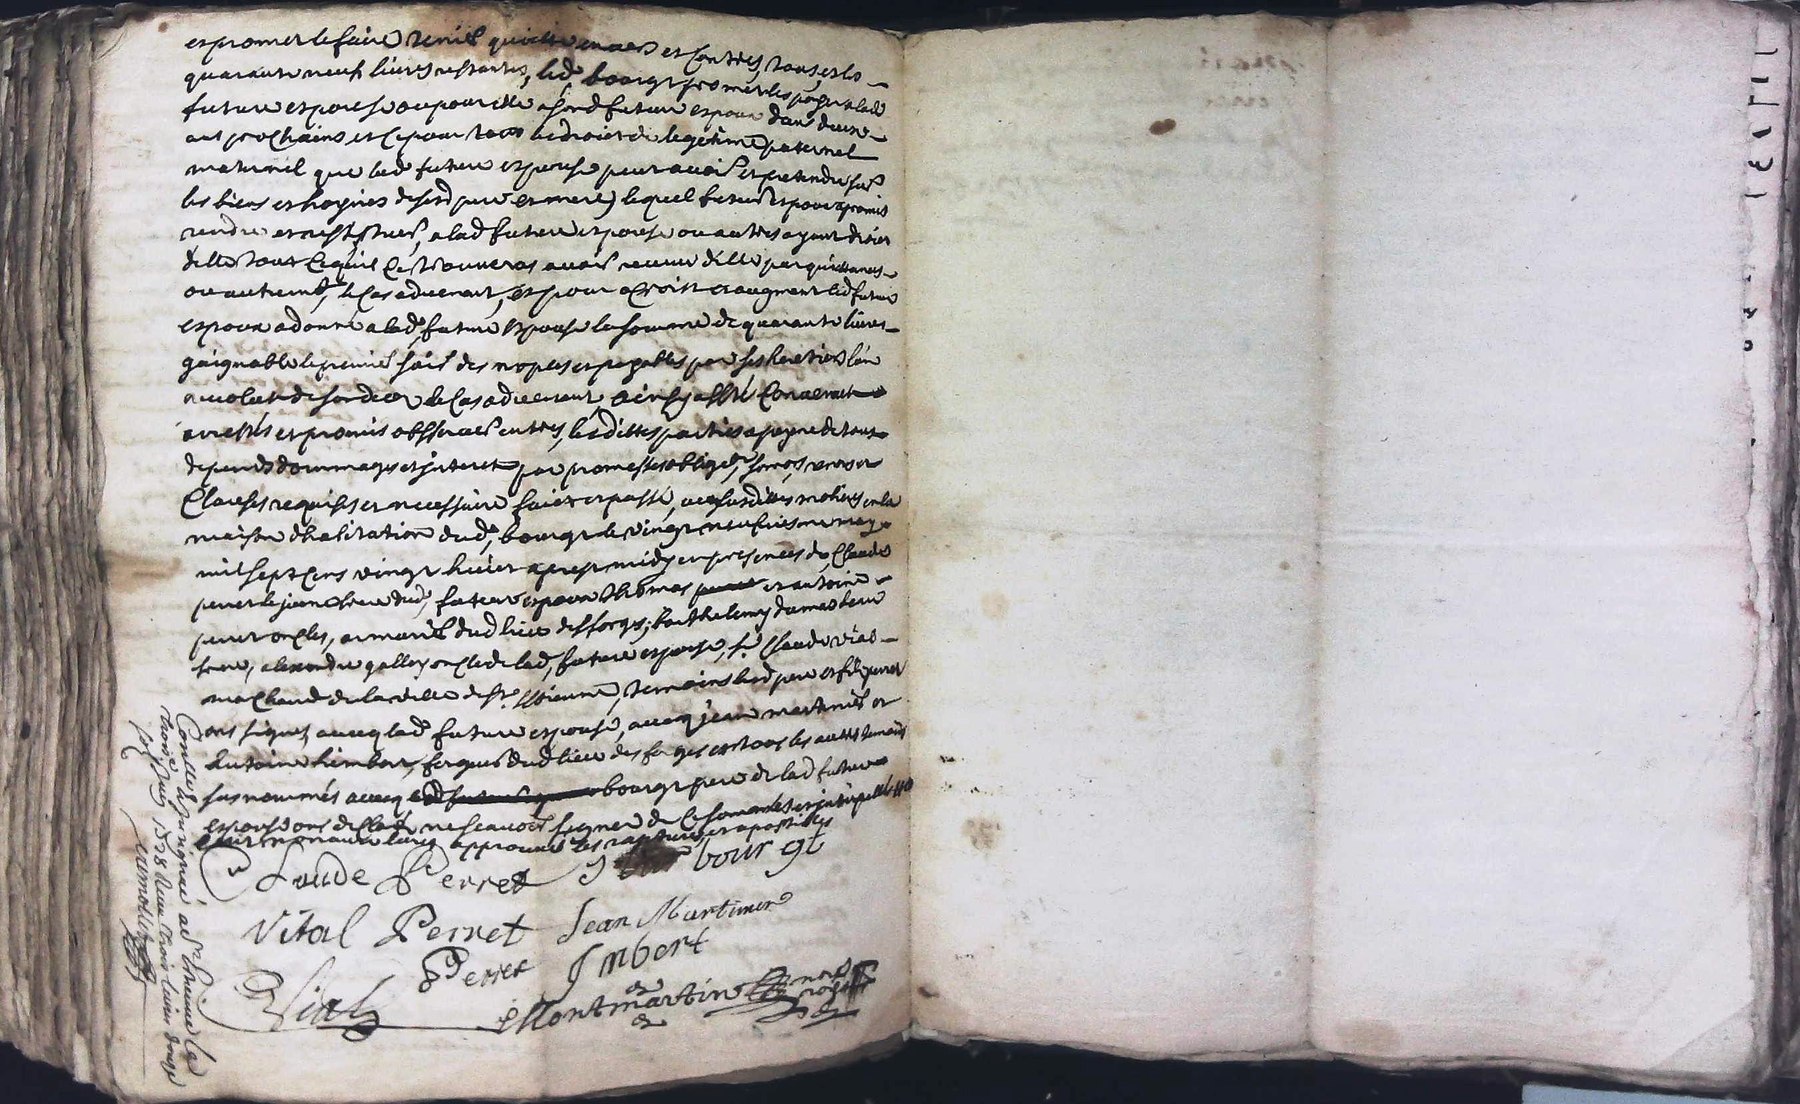 et promet le faire tenir quitte envers et contres tous, et les
quarante neuf livres restantes, led bourgt promet les payer a lad
future espouse ou pour elle aud futur espoux dans deux
ans prochains et ce pour tous les droict de legitime paternel
maternel que lad future espouse peut avoir et pretendre sur
les biens et hoyries desd pere et mere, lequel futur espoux a promis
rendre et restituer, a lad future espouse ou autres ayant droict
delle tout ce quil se trouveras avoir receu delle par quittances
ou autremt, le cas advenant, et pour acroist et augment led futur
espoux a donné a lad future espouse la somme de quarante livres
gaignable le premier jour des nopces et payables par ses heretiers l'an
revolut de son deces le cas advenant ainsy a esté convenut
arrestés et promis observer entres, lesdittes parties a peyne de tous
depends dommages et interets par promesses obligeon, soumons, renons et
clauses requises et necessaire faict et passé, aux susdittes molieres en la
maison dhabitation dud, bourgt le vingt neufviesme may
mil sept cens vingt huict apres midy en presences de Claude
perret le jeune frere dud, futur espoux thomas et antoine
perret oncles, dud lieu des forges, barthelemy dumas beau
frere, alexandre galley oncle de lad, future espouse, sr Claude vial
marchand de la ville de st. estienne, temoins lesd pere et fils perret
ont signes avecq lad future espouse, avecq jean martinier et
antoine himbert, forgeur dud lieu des forges et tous les autres temoins
susnommés avecq bourgt pere de lad future
espouse ont declaré ne scavoir signer de ce sommés et interpellés
approuvé les ratures et apostilles
Claude Perret bourgt
Vital Perret Jean Martinier
Perret Imbert
Vial Montmartin
nore
royal
Conllé et insinué a st Etienne le
juin 1728 Reçu trois livres douze